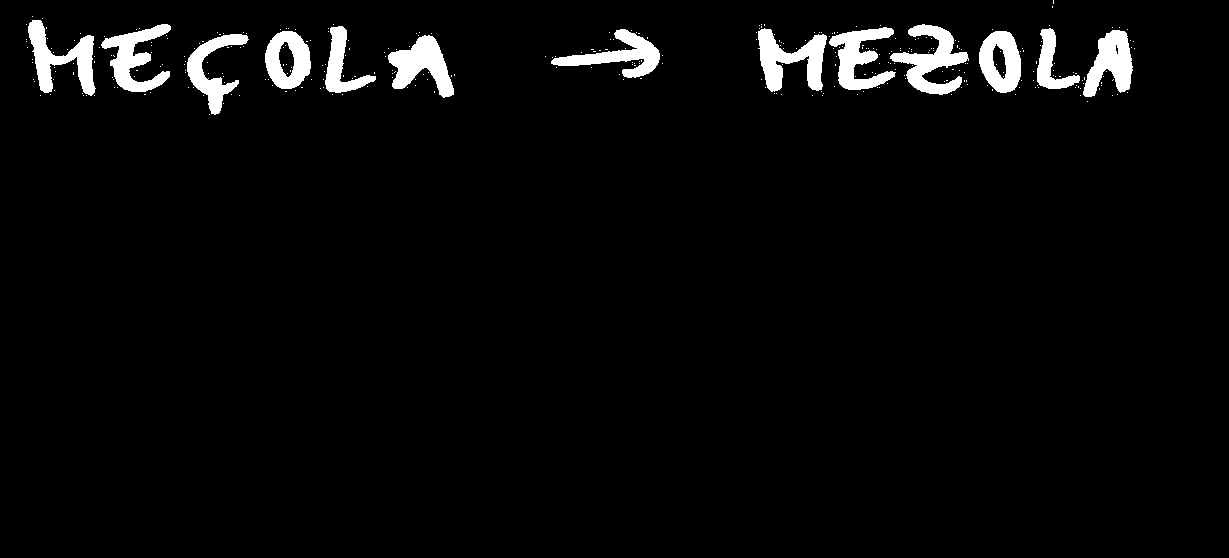 MEÇOLA → MEZOLA